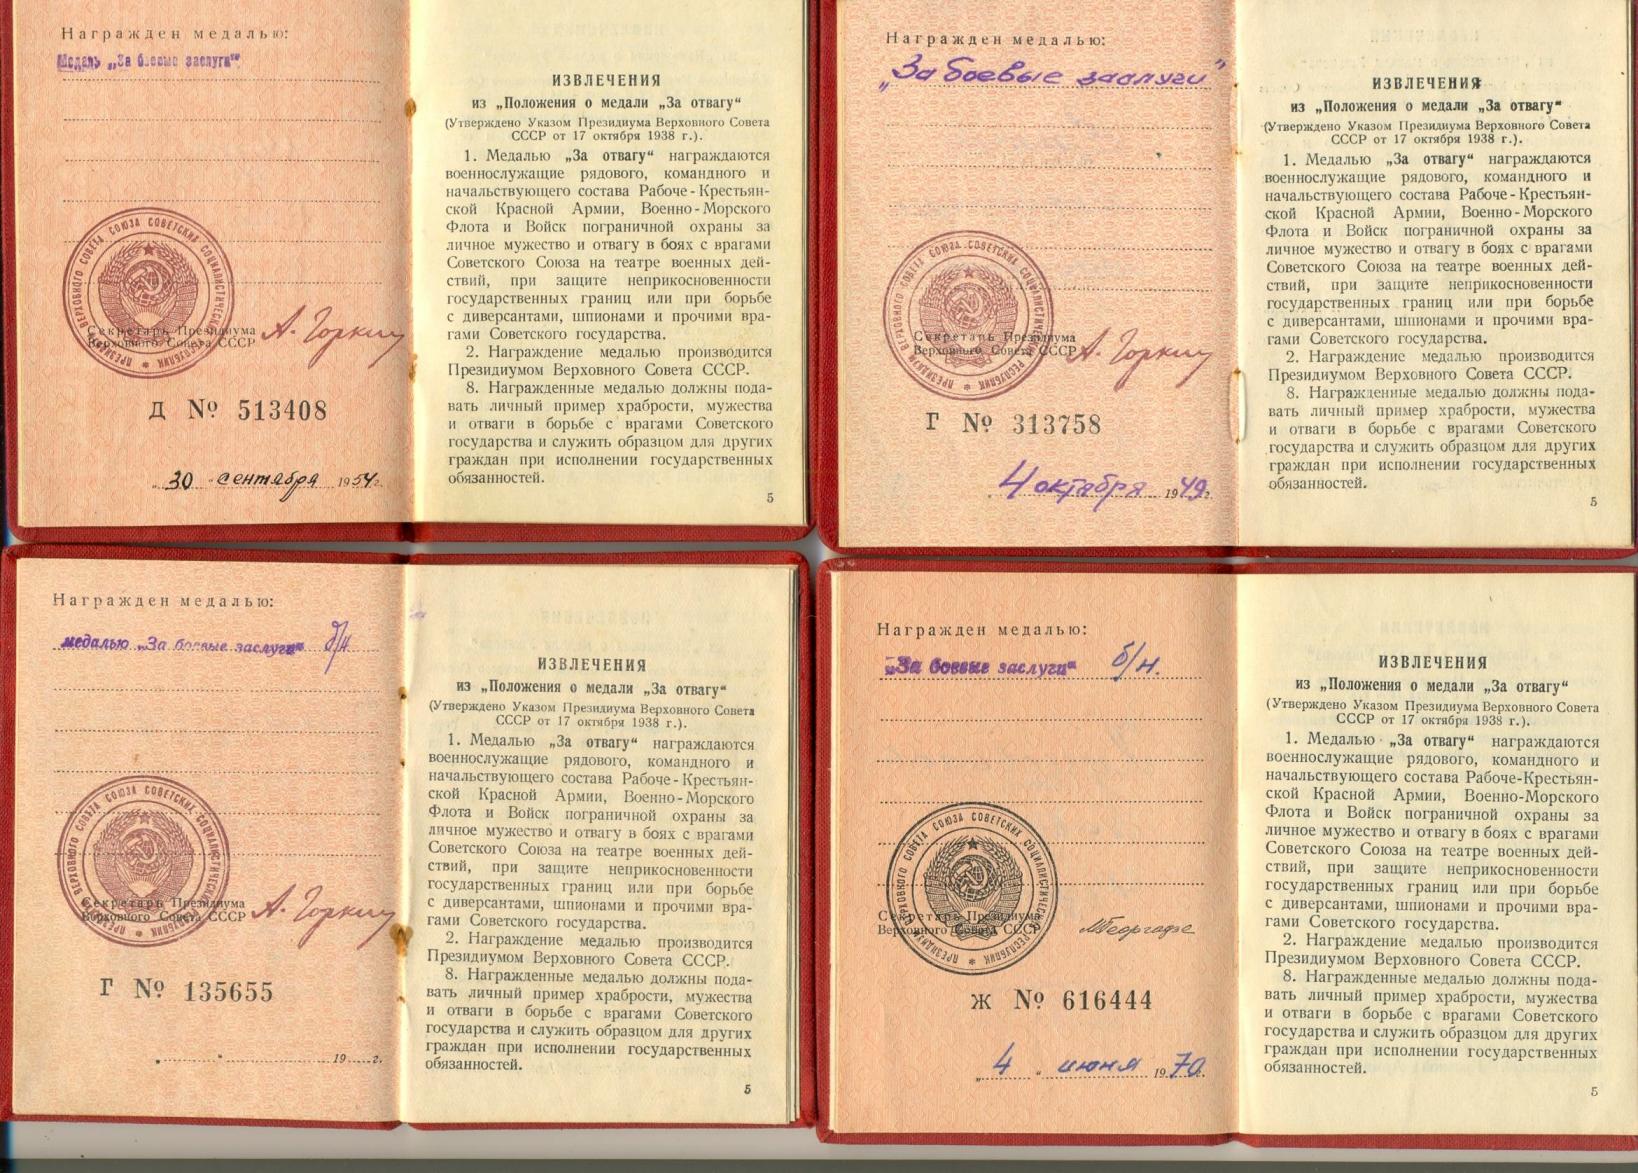 Награжден медалью:
Медаль „За боевые заслуги“
СЕКРЕТАРЬ Президиума
Верховного Совета СССР
А. Горкин
Д № 513408
„30“ сентября 1954 г.
ИЗВЛЕЧЕНИЯ
из „Положения о медали „За отвагу“
(Утверждено Указом Президиума Верховного Совета
СССР от 17 октября 1938 г.).
1. Медалью „За отвагу“ награждаются
военнослужащие рядового, командного и
начальствующего состава Рабоче-Крестьян-
ской Красной Армии, Военно-Морского
Флота и Войск пограничной охраны за
личное мужество и отвагу в боях с врагами
Советского Союза на театре военных дей-
ствий, при защите неприкосновенности
государственных границ или при борьбе
с диверсантами, шпионами и прочими вра-
гами Советского государства.
2. Награждение медалью производится
Президиумом Верховного Совета СССР.
8. Награжденные медалью должны пода-
вать личный пример храбрости, мужества
и отваги в борьбе с врагами Советского
государства и служить образцом для других
граждан при исполнении государственных
обязанностей.
5
Награжден медалью:
„За боевые заслуги“
ПРЕЗИДИУМ ВЕРХОВНОГО СОВЕТА СОЮЗА СОВЕТСКИХ СОЦИАЛИСТИЧЕСКИХ РЕСПУБЛИК
Секретарь Президиума
Верховного Совета СССР
А. Горкин
Г № 313758
„4 октября 1949 г.
ИЗВЛЕЧЕНИЯ
из „Положения о медали „За отвагу“
(Утверждено Указом Президиума Верховного Совета
СССР от 17 октября 1938 г.).
1. Медалью „За отвагу“ награждаются
военнослужащие рядового, командного и
начальствующего состава Рабоче-Крестьян-
ской Красной Армии, Военно-Морского
Флота и Войск пограничной охраны за
личное мужество и отвагу в боях с врагами
Советского Союза на театре военных дей-
ствий, при защите неприкосновенности
государственных границ или при борьбе
с диверсантами, шпионами и прочими вра-
гами Советского государства.
2. Награждение медалью производится
Президиумом Верховного Совета СССР.
8. Награжденные медалью должны пода-
вать личный пример храбрости, мужества
и отваги в борьбе с врагами Советского
государства и служить образцом для других
граждан при исполнении государственных
обязанностей.
5
Награжден медалью:
медалью „За боевые заслуги“ б/н
Секретарь Президиума
Верховного Совета СССР
А. Горкин
Г № 135655
„ “ 19 г.
ИЗВЛЕЧЕНИЯ
из „Положения о медали „За отвагу“
(Утверждено Указом Президиума Верховного Совета
СССР от 17 октября 1938 г.).
1. Медалью „За отвагу“ награждаются
военнослужащие рядового, командного и
начальствующего состава Рабоче-Крестьян-
ской Красной Армии, Военно-Морского
Флота и Войск пограничной охраны за
личное мужество и отвагу в боях с врагами
Советского Союза на театре военных дей-
ствий, при защите неприкосновенности
государственных границ или при борьбе
с диверсантами, шпионами и прочими вра-
гами Советского государства.
2. Награждение медалью производится
Президиумом Верховного Совета СССР.
8. Награжденные медалью должны пода-
вать личный пример храбрости, мужества
и отваги в борьбе с врагами Советского
государства и служить образцом для других
граждан при исполнении государственных
обязанностей.
5
Награжден медалью:
„За боевые заслуги“ б/н.
ПРЕЗИДИУМ ВЕРХОВНОГО СОВЕТА СОЮЗА СОВЕТСКИХ СОЦИАЛИСТИЧЕСКИХ РЕСПУБЛИК
Секретарь Президиума
Верховного Совета СССР
МГеоргадзе
Ж № 616444
„4“ июня 1970.
ИЗВЛЕЧЕНИЯ
из „Положения о медали „За отвагу“
(Утверждено Указом Президиума Верховного Совета
СССР от 17 октября 1938 г.).
1. Медалью „За отвагу“ награждаются
военнослужащие рядового, командного и
начальствующего состава Рабоче-Крестьян-
ской Красной Армии, Военно-Морского
Флота и Войск пограничной охраны за
личное мужество и отвагу в боях с врагами
Советского Союза на театре военных дей-
ствий, при защите неприкосновенности
государственных границ или при борьбе
с диверсантами, шпионами и прочими вра-
гами Советского государства.
2. Награждение медалью производится
Президиумом Верховного Совета СССР.
8. Награжденные медалью должны пода-
вать личный пример храбрости, мужества
и отваги в борьбе с врагами Советского
государства и служить образцом для других
граждан при исполнении государственных
обязанностей.
5